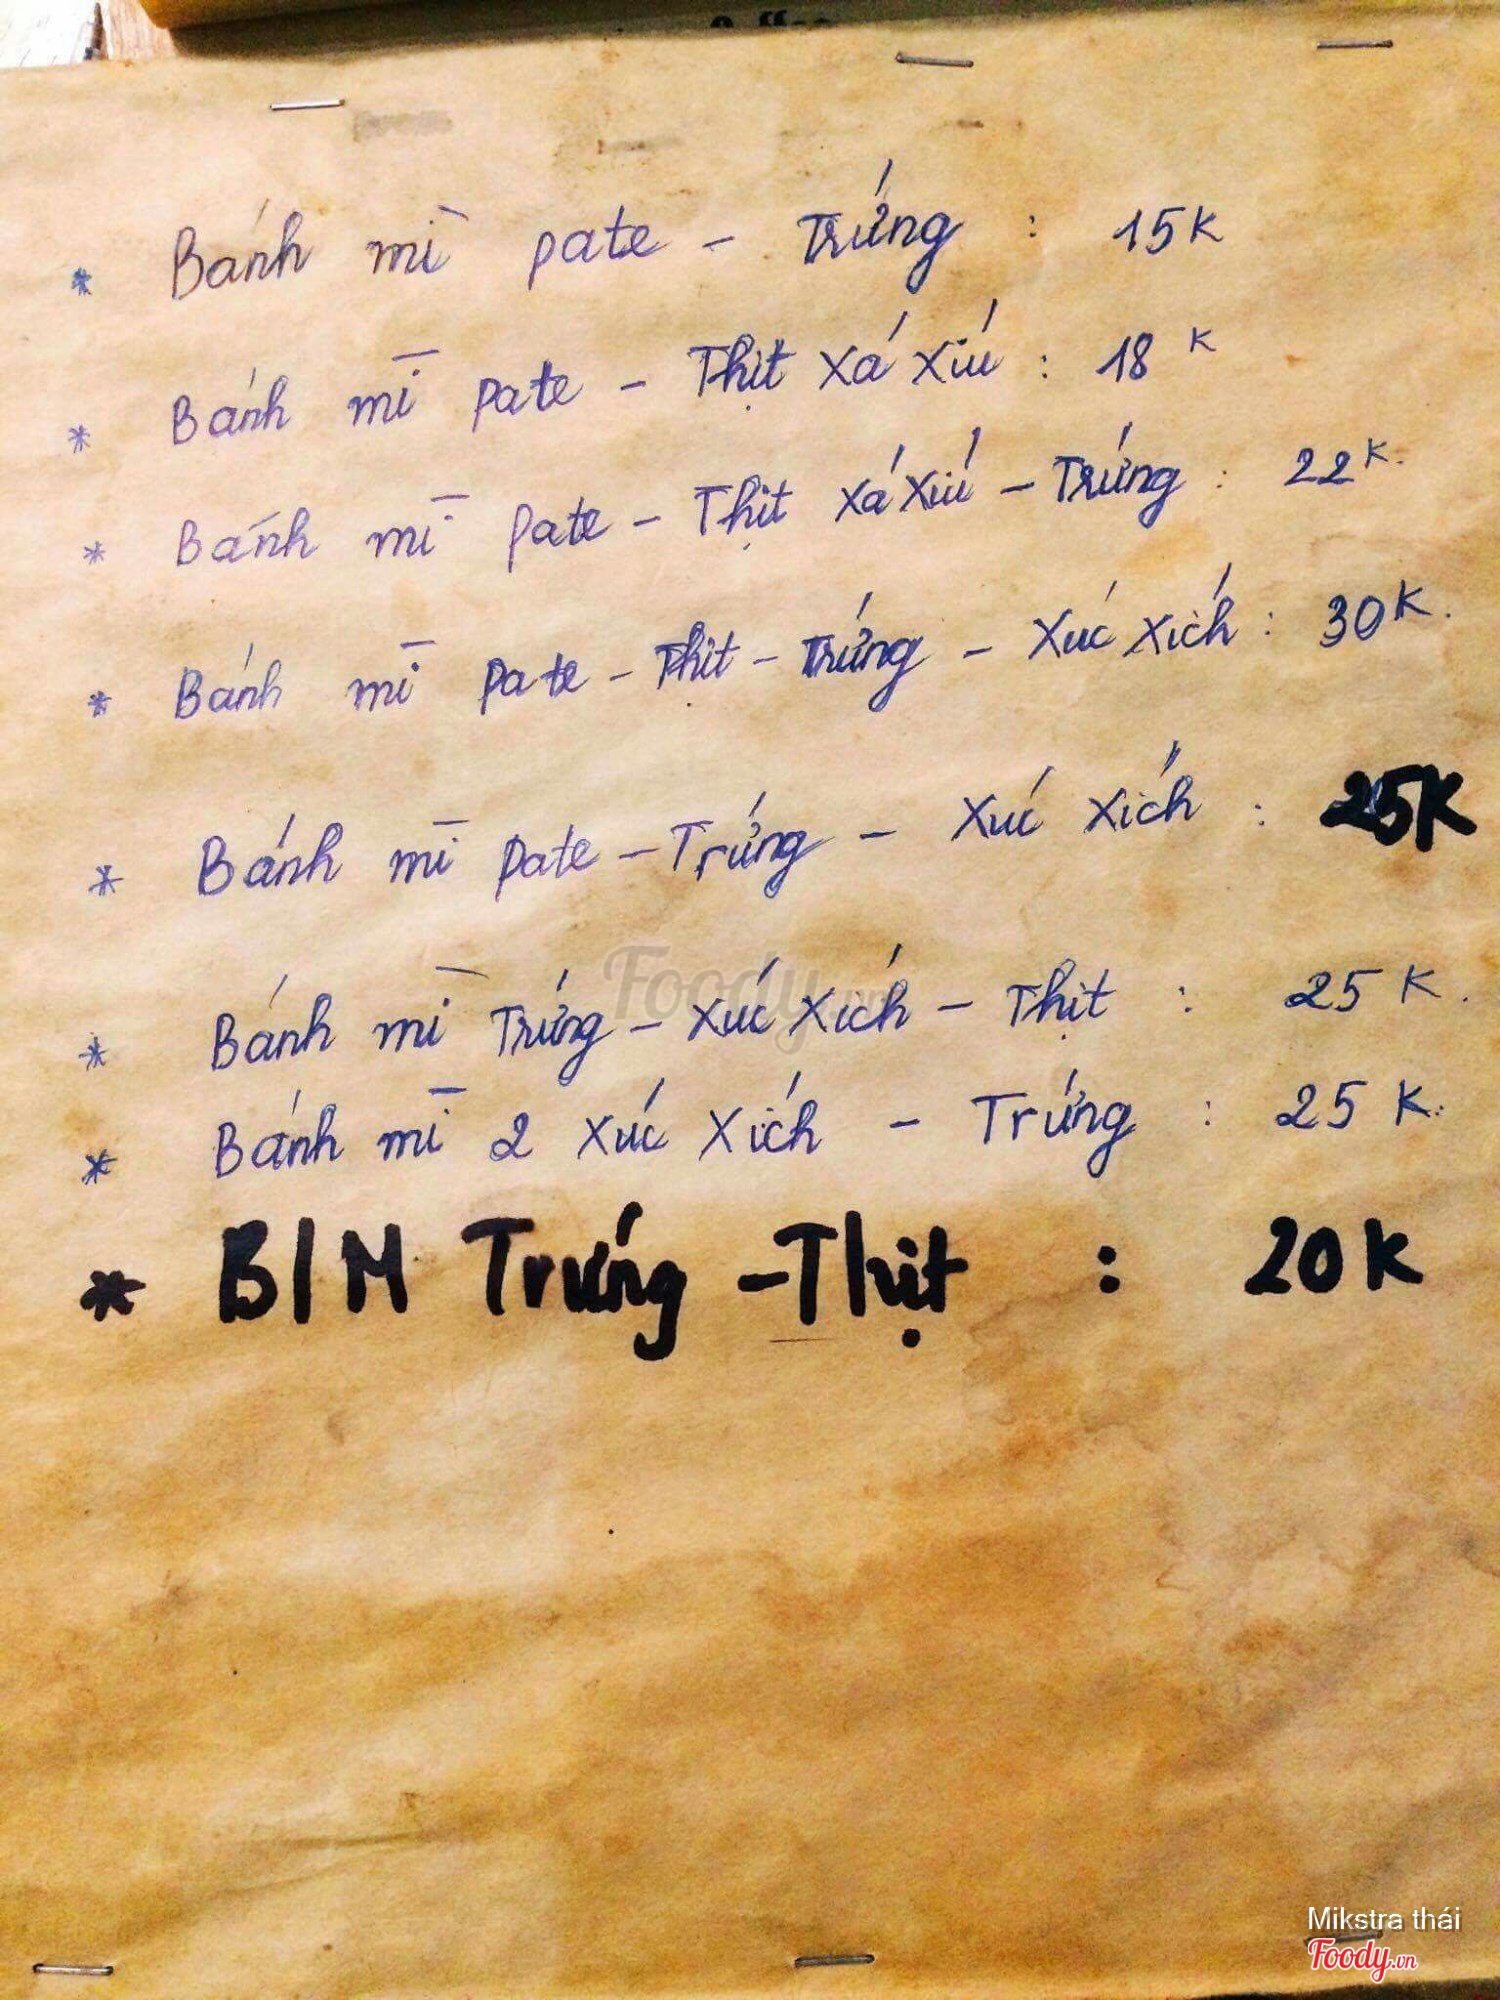 * Bánh mì pate - Trứng : 15K
* Bánh mì pate - Thịt Xá Xíu : 18K
* Bánh mì pate - Thịt Xá Xíu - Trứng : 22K.
* Bánh mì pate - Thịt - Trứng - Xúc Xích : 30K.
* Bánh mì pate - Trứng - Xúc Xích : 25K
Foody.vn
* Bánh mì Trứng - Xúc Xích - Thịt : 25K.
* Bánh mì 2 Xúc Xích - Trứng : 25K.
* B/M Trứng - Thịt : 20K
Mikstra thái
Foody.vn